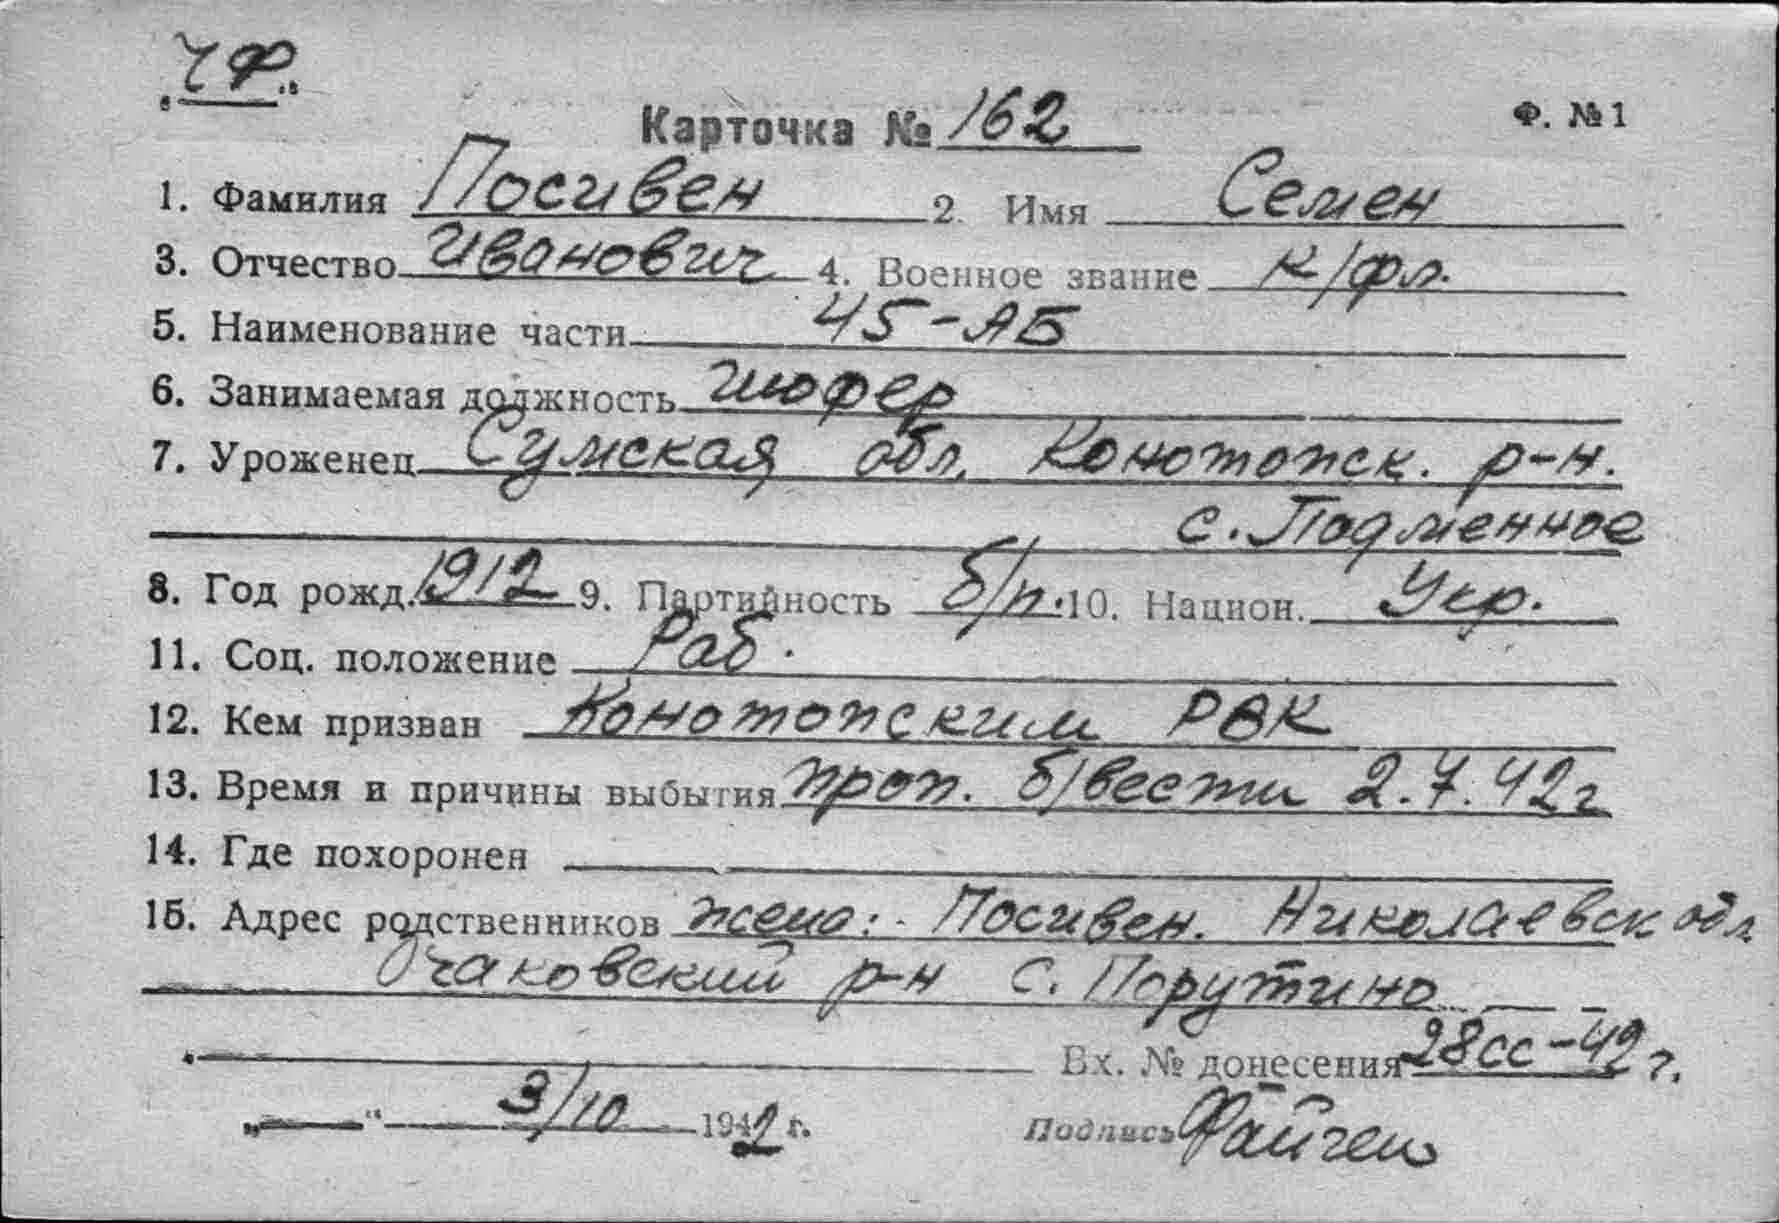 "ЧФ."
Карточка № 162 Ф. №1
1. Фамилия Посивен 2. Имя Семен
3. Отчество Иванович 4. Военное звание к/фл.
5. Наименование части 45-АБ
6. Занимаемая должность шофер
7. Уроженец Сумская обл. Конотопск. р-н.
с. Подменное
8. Год рожд. 1912 9. Партийность б/п. 10. Национ. Укр.
11. Соц. положение Раб.
12. Кем призван Конотопским РВК
13. Время и причины выбытия проп. б/вести 2.7.42г
14. Где похоронен
15. Адрес родственников жена: - Посивен. Николаевск обл
Очаковский р-н с. Порутино
Вх. № донесения 28сс-42 г.
„ “ 3/10 1942 г. Подпись